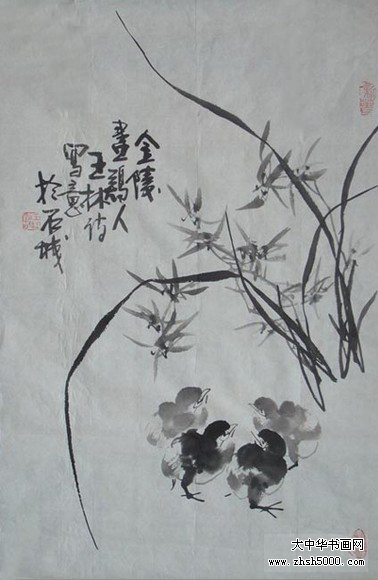 金陵
畫鷄人
王林诗
寫意
於石城
大中华书画网
www.zhsh5000.com